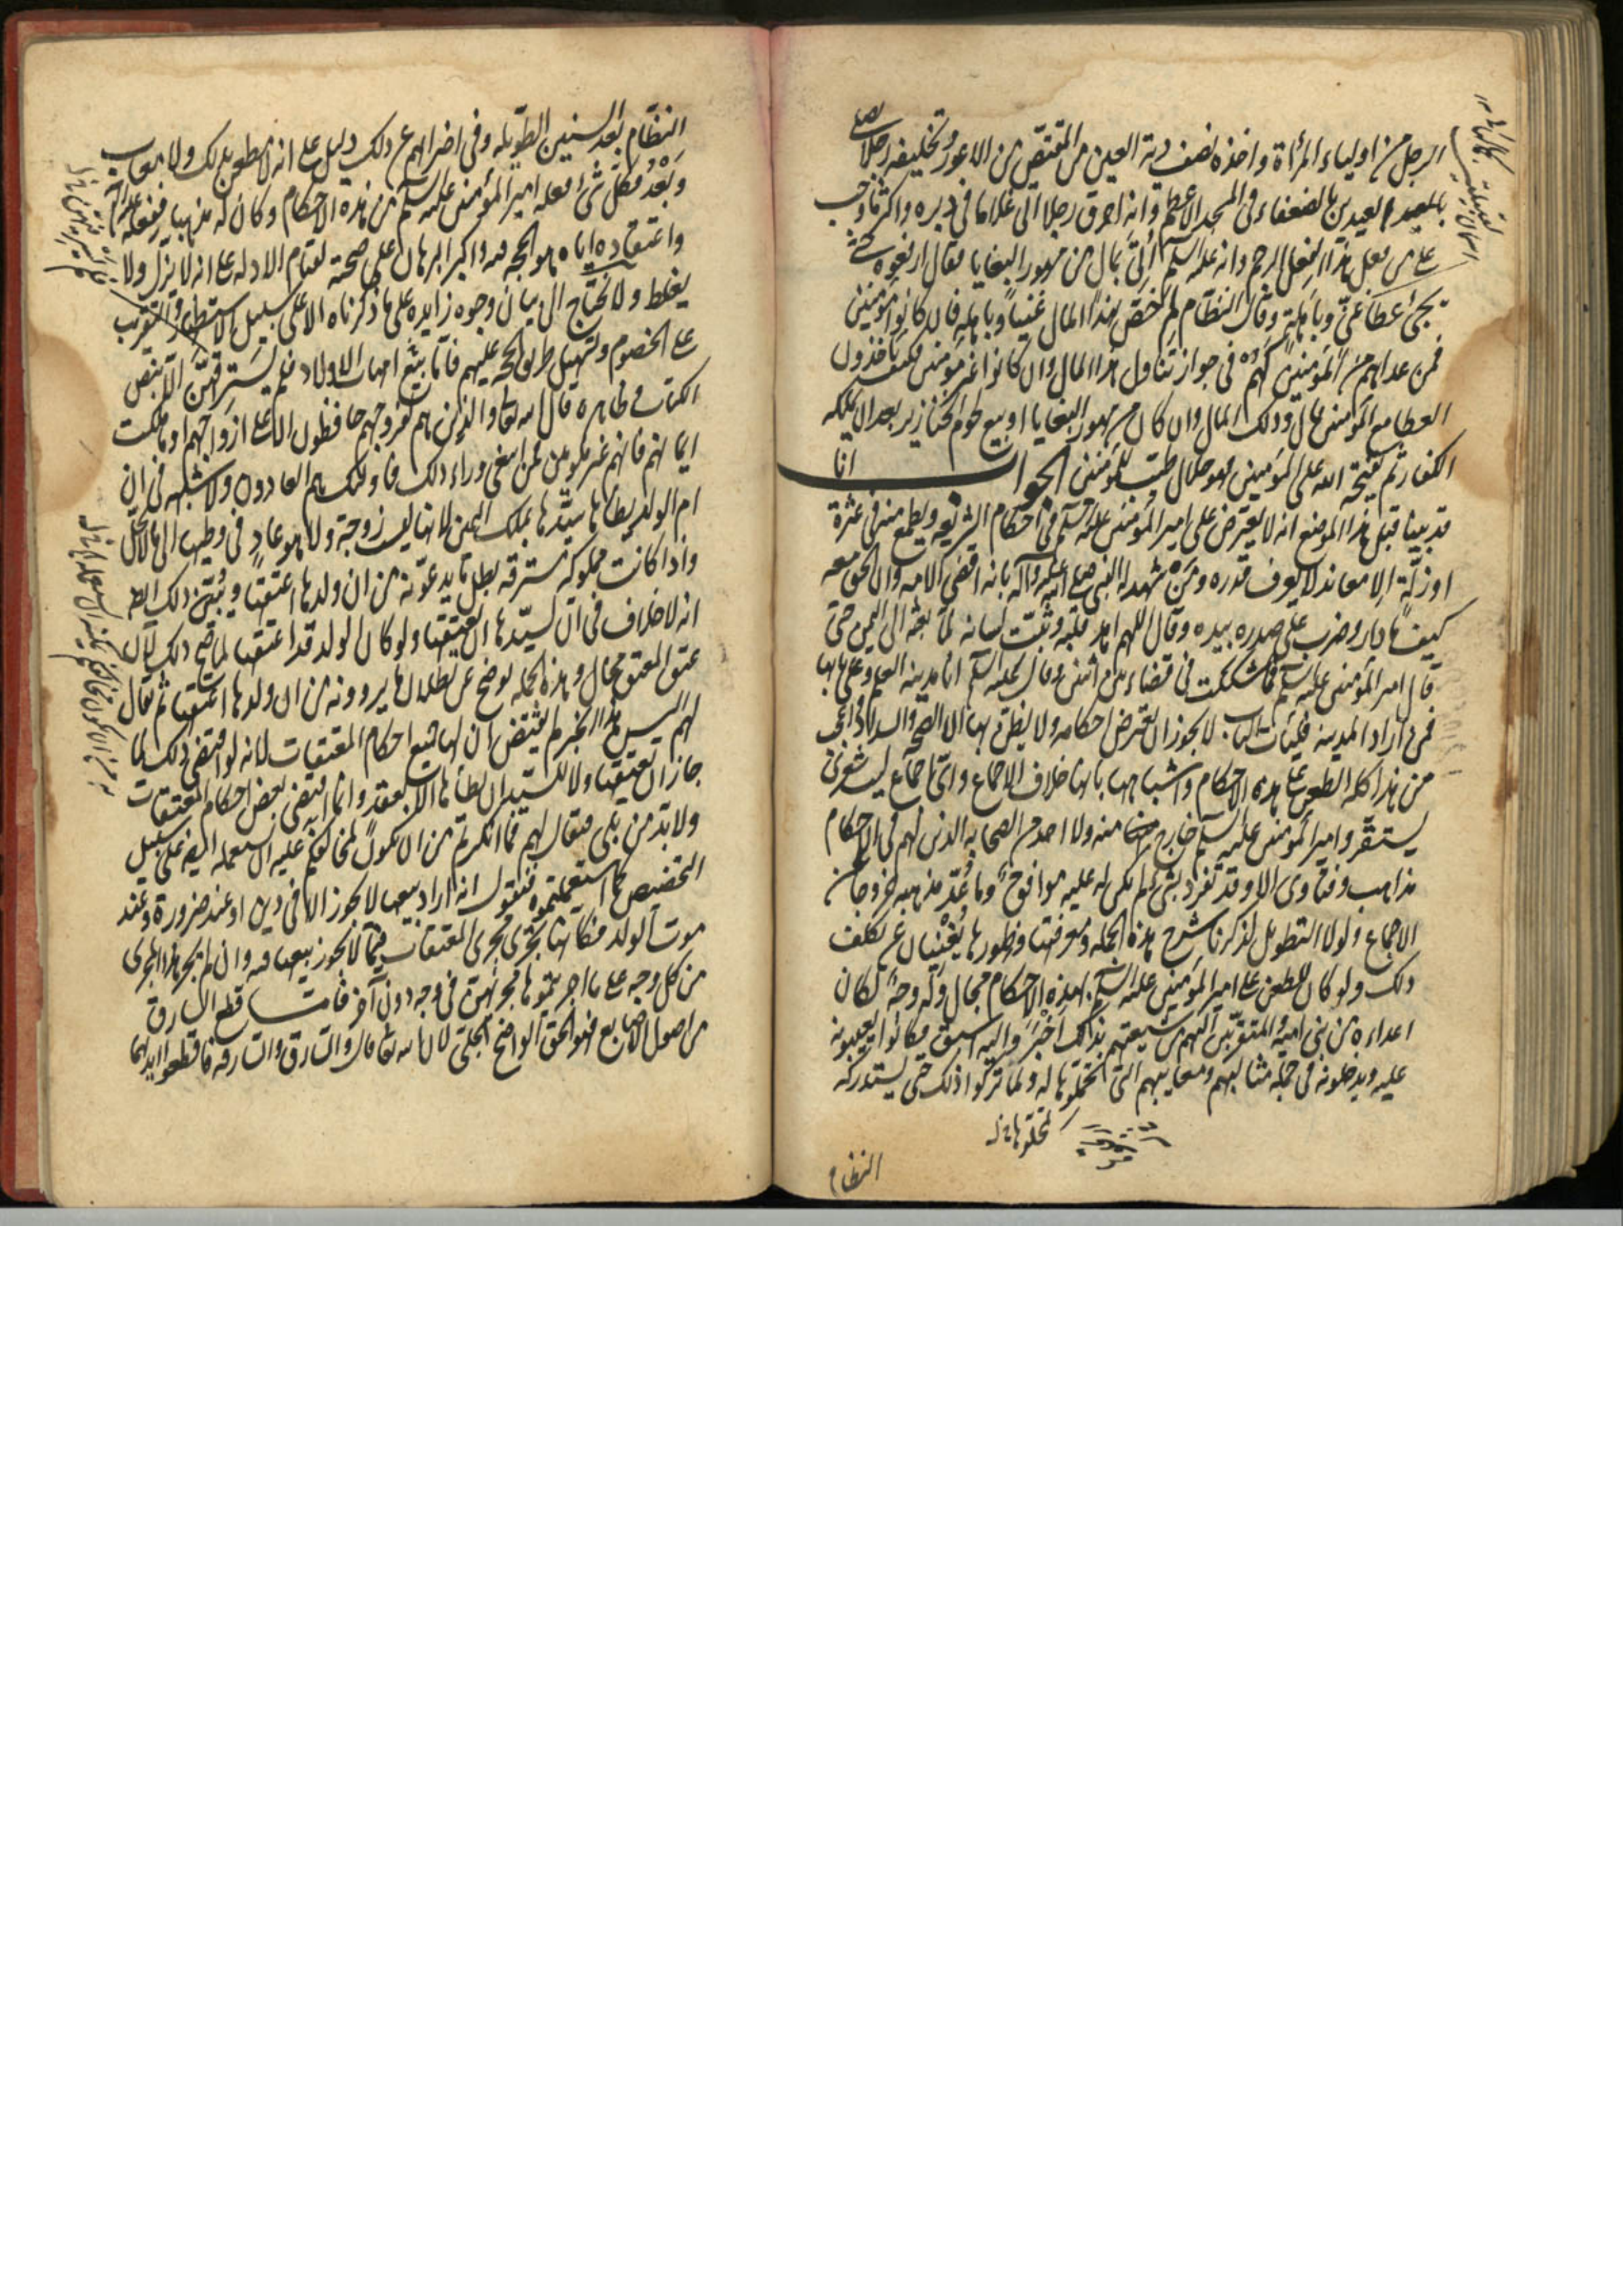 الرجل من اولياء المرأة واخذه نصف دية العين من المقتص من الاعور وتخليفه رجلا يصلي
العيدين بالضعفاء في المسجد الاعظم وانه احرق رجلا اتى غلاما في دبره واكثر ما اوجب
على من فعل هذا الفعل الرجم وانه عليه السلم اتي بمال من مهور البغايا فقال ارفعوه حتى
يجئ عطا غني وباهلة وقال النظام لم خص بهذا المال غنيا وباهلة فان كانوا مؤمنين
فمن عداهم من المؤمنين كهم في جواز تناول هذا المال وان كانوا غير مؤمنين فكيف ياخذون
العطا مع المؤمنين قال وذلك المال وان كان من مهور البغايا او بيع لحوم الخنازير بعد ان تملكه
الكفار ثم يفتحه الله على المؤمنين فهو حلال طيب للمؤمنين الجواب انا
قد بينا قبل هذا الموضع انه لا يعترض على امير المؤمنين عليه السلم في احكام الشريعة ويطمع منه في عثرة
او زلة الا معاند لا يعرف قدره ومن شهد له النبي صلى الله عليه وآله بانه اقضى الامة وان الحق معه
كيف ما دار وضرب على صدره بيده وقال اللهم اهد قلبه وثبت لسانه لما بعثه الى اليمن حتى
قال امير المؤمنين عليه السلم فما شككت في قضاء بين اثنين وقال عليه السلم انا مدينة العلم وعلي بابها
فمن اراد المدينة فليأت الباب لا يجوز ان يعترض احكامه ولا يظن بها الا الصحة والسداد واعجب
من هذا كله الطعن على هذه الاحكام واشباهها بانها خلاف الاجماع واي اجماع ليت شعري
يستقر وامير المؤمنين عليه السلم خارج منه ولا احد من الصحابة الذين لهم في الاحكام
مذاهب وفتاوى الا وقد تفرد بشئ لم يكن له عليه موافق وما عد مذهبه خروجا عن
الاجماع ولولا التطويل لذكرنا شرح هذه الجملة ومعرفتها وظهورها يغنيان عن تكلف
ذلك ولو كان للطعن على امير المؤمنين عليه السلم بهذه الاحكام مجال وله وجه لكان
اعداءه من بني امية والمتقربين اليهم من شيعتهم بذلك اخبر واليه اسبق وكانوا يعيبونه
عليه ويدخلونه في جملة مثالبهم ومعايبهم التي تمحلوها له ولما تركوا ذلك حتى يستدركه
النظام
النظام بعد السنين الطويلة وفي اضرابهم عن ذلك دليل على انه لا مطعن بذلك ولا معاب
وبعد فكل شئ فعله امير المؤمنين عليه السلم من هذه الاحكام وكان له مذهبا ففعله له
واعتقاده اياه هو الحجة فيه واكبر البرهان على صحته لقيام الادلة على انه لا يزل ولا
يغلط ولا يحتاج الى بيان وجوه زايدة على ما ذكرناه الا على سبيل الاستظهار والتقريب
على الخصوم وتسهيل طريق الحجة عليهم فاما بيع امهات الاولاد فلم يسر فيهن الا بنص
الكتاب وظاهره قال الله تعالى والذين هم لفروجهم حافظون الا على ازواجهم او ما ملكت
ايمانهم فانهم غير ملومين فمن ابتغى وراء ذلك فاولئك هم العادون ولا شبهة في ان
ام الولد يطأها سيدها بملك اليمين لانها ليست زوجة ولا هو عاد في وطيها الى ما لا يحل
واذا كانت مملوكة مسترقة بطل ما يدعونه من ان ولدها اعتقها ويبين ذلك ايضا
انه لا خلاف في ان لسيدها ان يعتقها ولو كان الولد قد اعتقها لما صح ذلك لان
عتق المعتق محال وهذه الجملة توضح عن بطلان ما يروونه من ان ولدها اعتقها ثم يقال
لهم اليس هذا الخبر لم يقتض ان لها جميع احكام المعتقات لانه لو اقتضى ذلك لما
جاز ان يعتقها ولا للسيد ان يطأها الا بعقد وانما اقتضى بعض احكام المعتقات
ولا بد من بلى فيقال لهم فما انكرتم من ان يكون مخالفكم عليه ان يستعمله ايضا على سبيل
التخصيص كما استعملتموه فنقول انه اراد بيعها لا يجوز الا في دين او عند ضرورة وعند
موت الولد فكانها تجري مجرى المعتقات فيما لا يجوز بيعها فيه وان لم تجر هذا المجرى
من كل وجه على ما اجريتموها مجريهن في وجه دون آخر فاما قطع السارق
من اصول الاصابع فهو الحق الواضح الجلي لان الله تعالى قال والسارق والسارقة فاقطعوا ايديهما